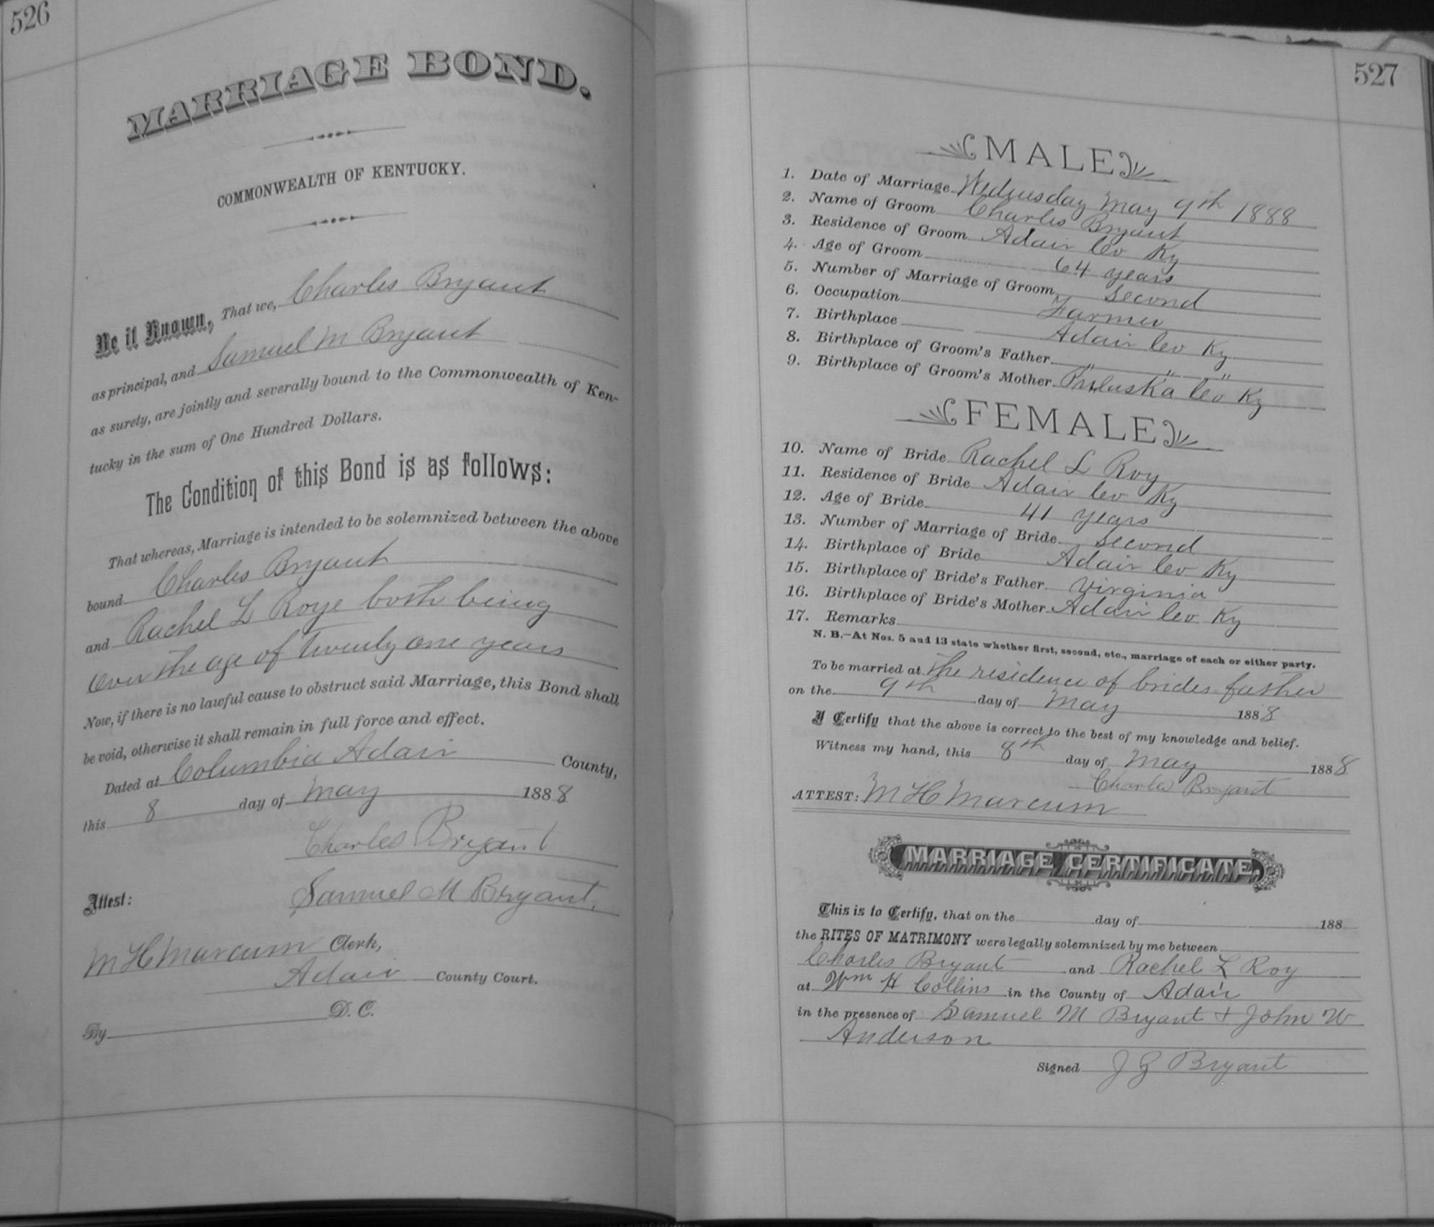 526
MARRIAGE BOND.
COMMONWEALTH OF KENTUCKY.
Be it Known, That we, Charles Bryant
as principal, and Samuel M Bryant
as surety, are jointly and severally bound to the Commonwealth of Ken-
tucky in the sum of One Hundred Dollars.
The Condition of this Bond is as follows:
That whereas, Marriage is intended to be solemnized between the above
bound Charles Bryant
and Rachel L Roye both being
over the age of twenty one years
Now, if there is no lawful cause to obstruct said Marriage, this Bond shall
be void, otherwise it shall remain in full force and effect.
Dated at Columbia Adair County,
this 8 day of May 1888
Charles Bryant
Samuel M Bryant.
Attest:
M H Marcum Clerk,
Adair County Court.
By D. C.
527
MALE
1. Date of Marriage Wednesday May 9th 1888
2. Name of Groom Charles Bryant
3. Residence of Groom Adair Co Ky
4. Age of Groom 64 years
5. Number of Marriage of Groom Second
6. Occupation Farmer
7. Birthplace Adair Co Ky
8. Birthplace of Groom's Father " " "
9. Birthplace of Groom's Mother Puluska Co Ky
FEMALE
10. Name of Bride Rachel L Roy
11. Residence of Bride Adair Co Ky
12. Age of Bride 41 years
13. Number of Marriage of Bride Second
14. Birthplace of Bride Adair Co Ky
15. Birthplace of Bride's Father Virginia
16. Birthplace of Bride's Mother Adair Co Ky
17. Remarks
N. B.—At Nos. 5 and 13 state whether first, second, etc., marriage of each or either party.
To be married at the residence of brides father
on the 9th day of May 1888
I Certify that the above is correct to the best of my knowledge and belief.
Witness my hand, this 8th day of May 1888
Charles Bryant
ATTEST: M H Marcum
MARRIAGE CERTIFICATE.
This is to Certify, that on the day of 188
the RITES OF MATRIMONY were legally solemnized by me between
Charles Bryant and Rachel L Roy
at Wm H Collins in the County of Adair
in the presence of Samuel M Bryant + John W
Anderson
Signed J G Bryant